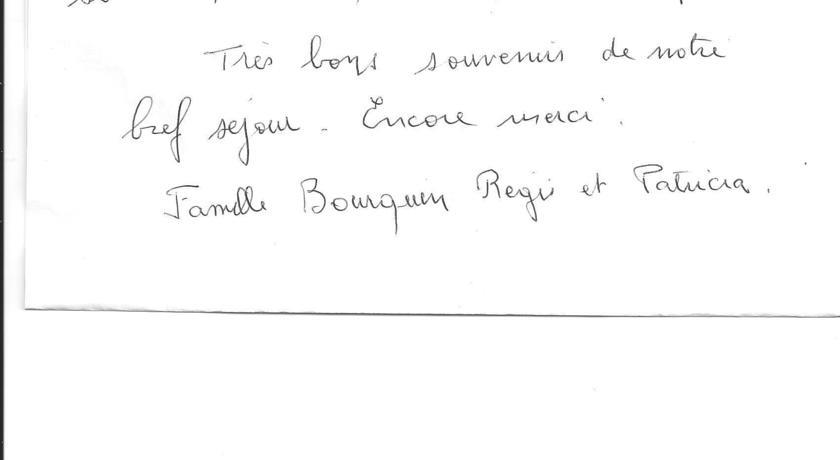 Très bons souvenirs de notre
bref séjour. Encore merci.
Famille Bourquin Regis et Patricia.